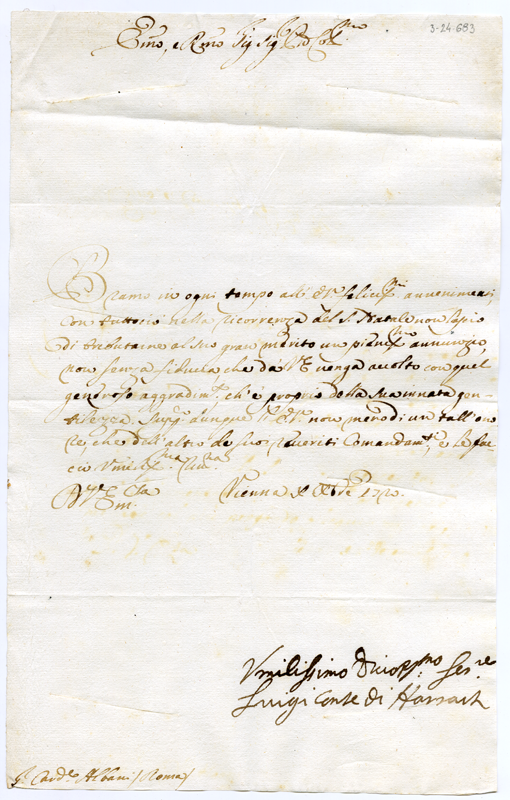 3-24-683
Emo, e Rmo Sig Sig Col.mo
Bramo in ogni tempo all' E.V. felicis.mi avvenimenti
con tuttocio nella ricorrenza del S. Natale non sapro
di tributarne al suo gran merito un pienis.mo annunzio,
non senza fiducia che da V.E. venga accolto con quel
generoso aggradim.to ch'è proprio della sua innata gen-
tilezza. dunque V.E. non meno di un tall' ono
re, che dell' altro de suoi riveriti Comandam.ti, e le fac
cio
D V.E.
Vienna Xbre 1720.
Umilissimo Divotis.mo Ser.re
Luigi Conte di Harrach
S. Card.e Albani / Roma /